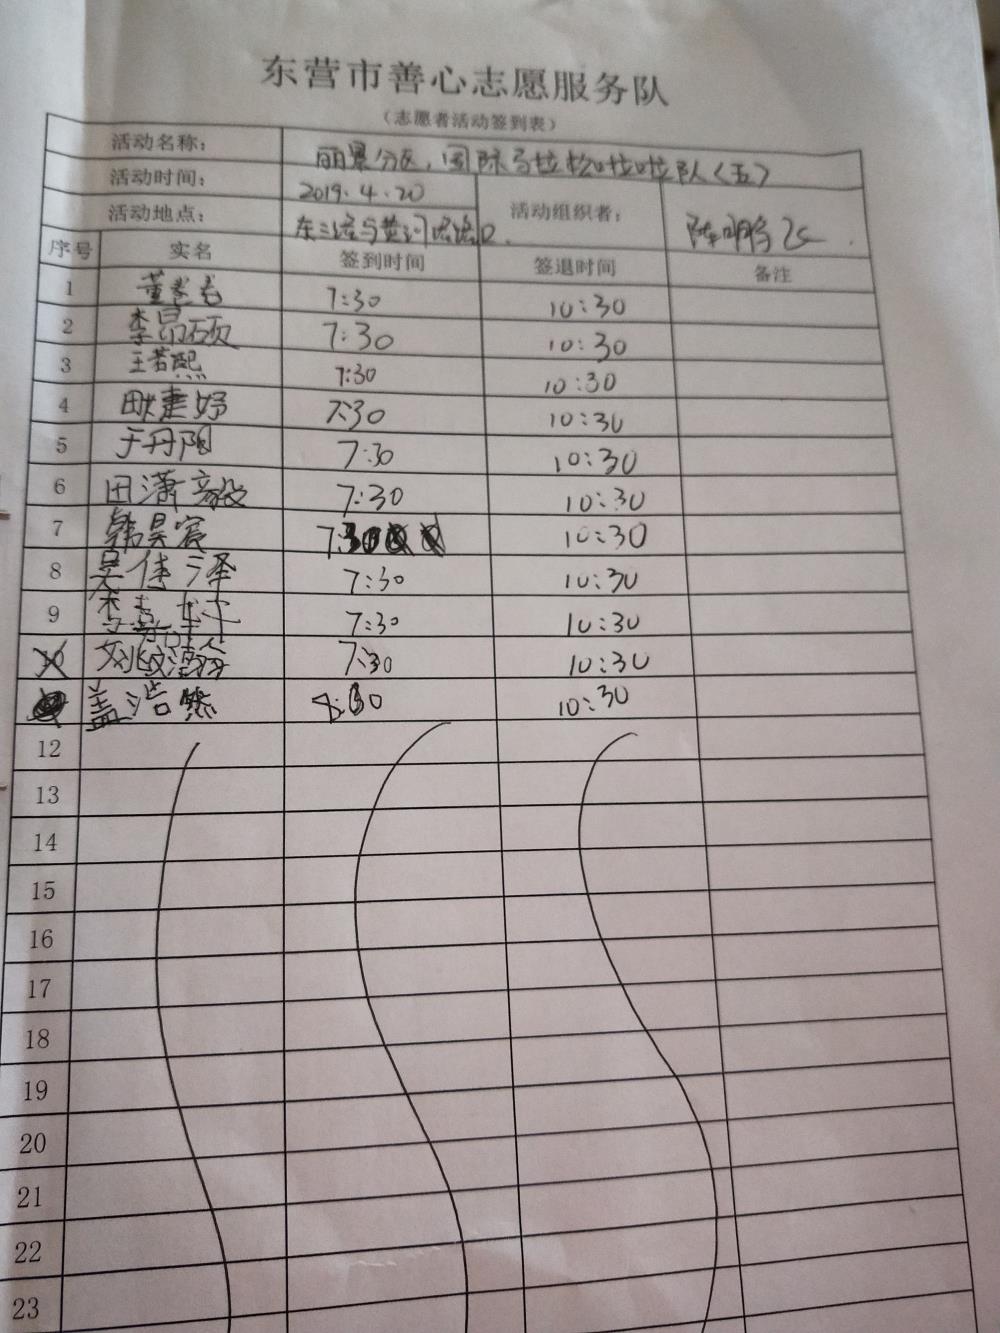 东营市善心志愿服务队
（志愿者活动签到表）
活动名称： 丽景分区，国际马拉松啦啦队（五）
活动时间： 2019.4.20 活动组织者：
活动地点： 东三路与黄河路路口.
序号 实名 签到时间 签退时间 备注
1 董 7:30 10:30
2 李昂硕 7:30 10:30
3 王若熙 7:30 10:30
4 妤 7:30 10:30
5 于丹阳 7:30 10:30
6 田潇毅 7:30 10:30
7 韩昊宸 7:30 10:30
8 吴佳泽 7:30 10:30
9 7:30 10:30
7:30 10:30
盖浩然 8:30 10:30
12
13
14
15
16
17
18
19
20
21
22
23